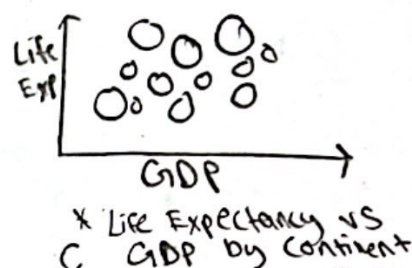 Life
Exp
GDP
* Life Expectancy vs
C GDP by Continent